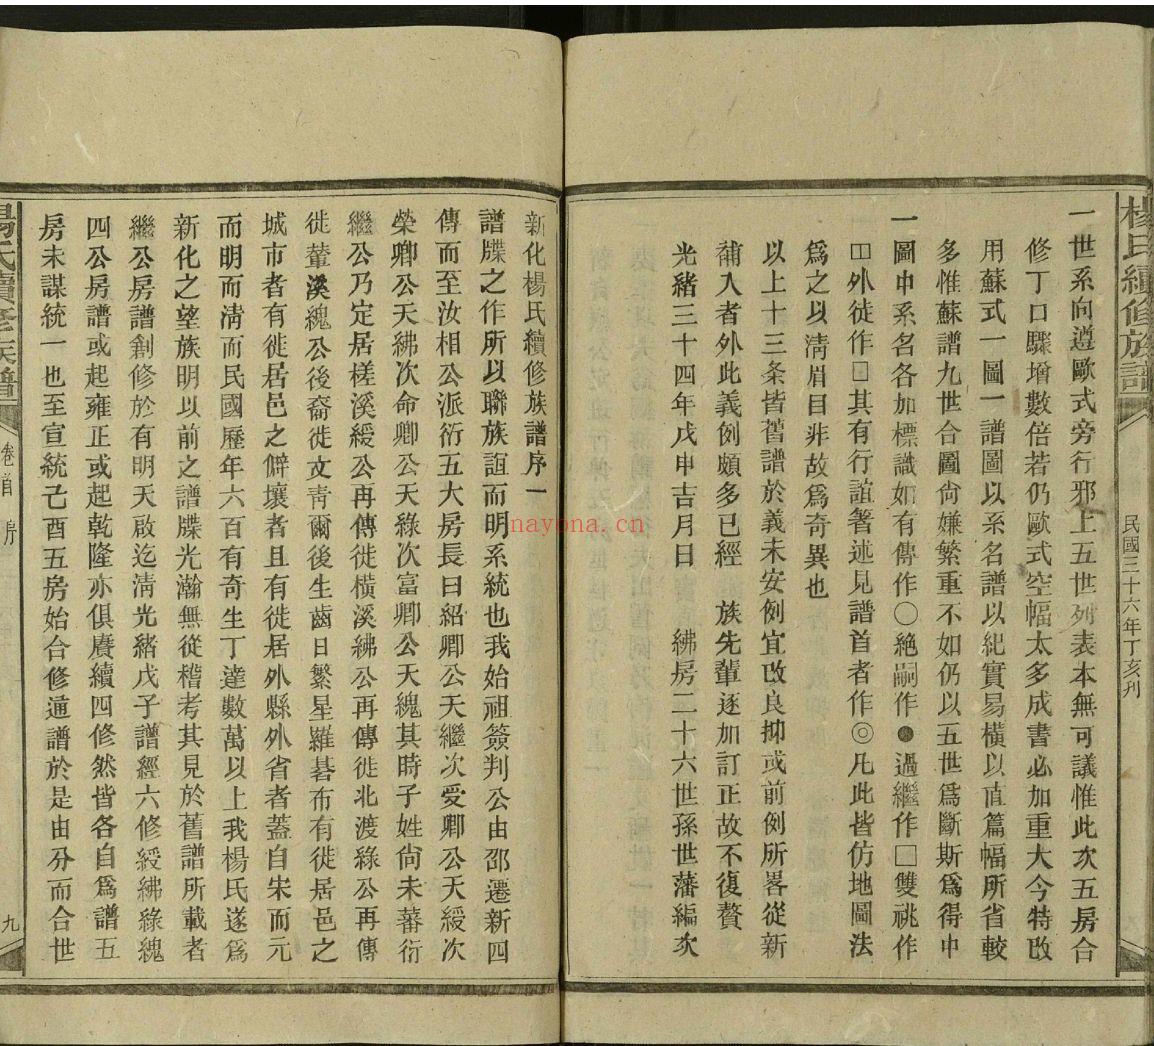 楊氏續修族譜
民國三十六年丁亥刊
一世系向遵歐式旁行邪上五世列表本無可議惟此次五房合
修丁口驟增數倍若仍歐式空幅太多成書必加重大今特改
用蘇式一圖一譜圖以系名譜以紀實易橫以值篇幅所省較
多惟蘇譜九世合圖尙嫌繁重不如仍以五世爲斷斯爲得中
一圖中系名各加標識如有傳作〇絕嗣作●過繼作□雙祧作
□□外徙作□其有行誼箸述見譜首者作◎凡此皆仿地圖法
爲之以淸眉目非故爲奇異也
以上十三条皆舊譜於義未安例宜改良抑或前例所畧從新
補入者外此義例頗多已經　族先輩逐加訂正故不復贅
光緒三十四年戊申吉月日　　紼房二十六世孫世藩編次
新化楊氏續修族譜序一
譜牒之作所以聯族誼而明系統也我始祖簽判公由邵遷新四
傳而至汝相公派衍五大房長曰紹卿公天繼次受卿公天綬次
榮卿公天紼次命卿公天綠次富卿公天緺其時子姓尙未蕃衍
繼公乃定居槎溪綬公再傳徙橫溪紼公再傳徙北渡綠公再傳
徙輋溪緺公後裔徙文靑爾後生齒日繁星羅碁布有徙居邑之
城市者有徙居邑之僻壤者且有徙居外縣外省者蓋自宋而元
而明而淸而民國歷年六百有奇生丁達數萬以上我楊氏遂爲
新化之望族明以前之譜牒光瀚無從稽考其見於舊譜所載者
繼公房譜創修於有明天啟迄淸光緒戊子譜經六修綬紼綠緺
四公房譜或起雍正或起乾隆亦俱賡續四修然皆各自爲譜五
房未謀統一也至宣統己酉五房始合修通譜於是由分而合世
楊氏續修族譜
卷首
序
九
nayona.cn